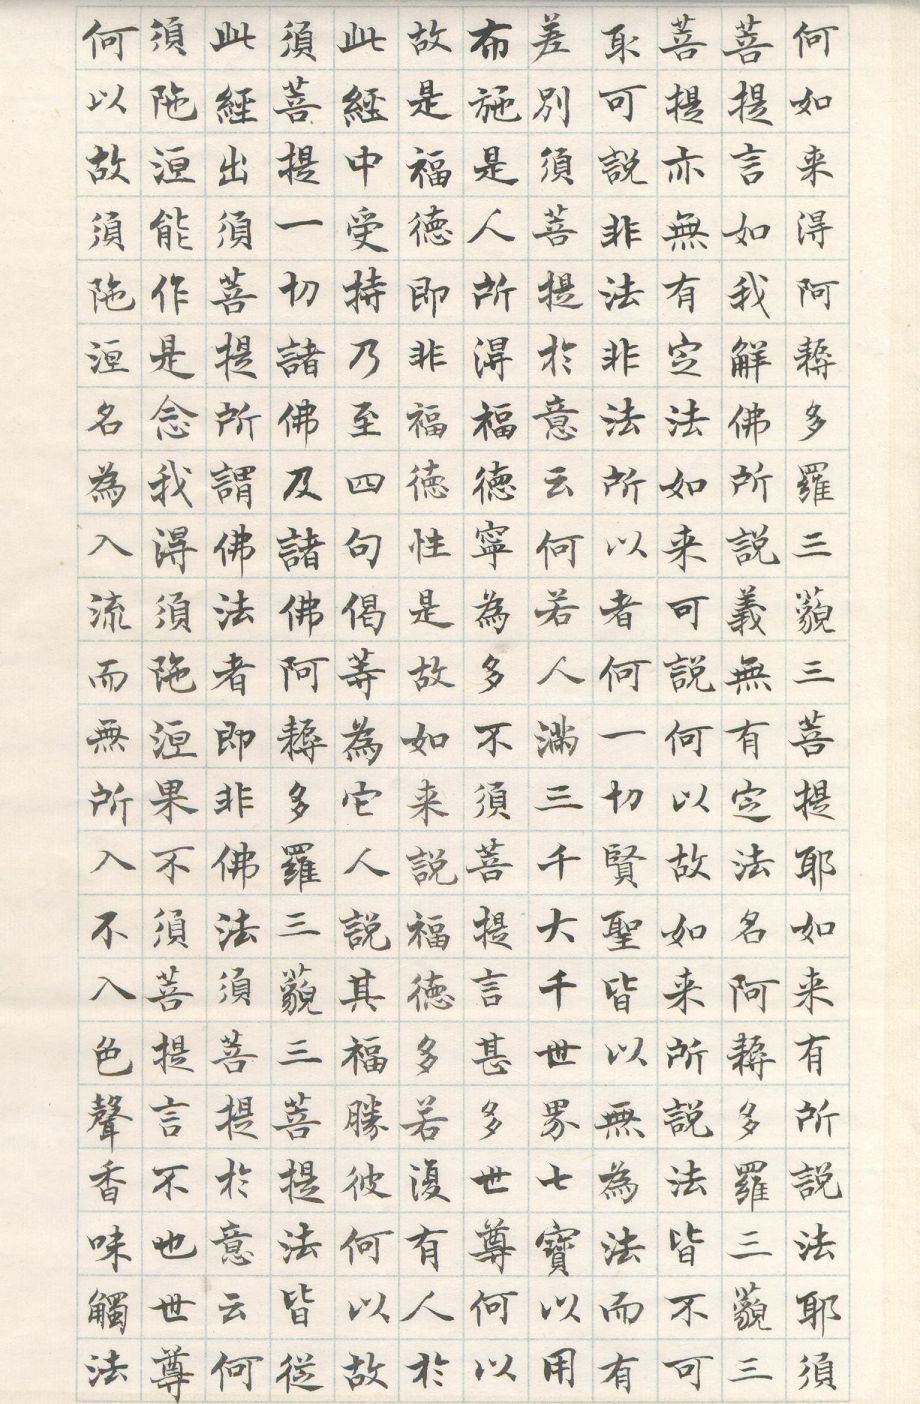 何如来得阿耨多羅三藐三菩提耶如来有所説法耶須
菩提言如我解佛所説義無有定法名阿耨多羅三藐三
菩提亦無有定法如来可説何以故如来所説法皆不可
取可説非法非法所以者何一切賢聖皆以無為法而有
差別須菩提於意云何若人満三千大千世界七寶以用
布施是人所得福德寧為多不須菩提言甚多世尊何以
故是福德即非福德性是故如来説福德多若復有人於
此經中受持乃至四句偈等為它人説其福勝彼何以故
須菩提一切諸佛及諸佛阿耨多羅三藐三菩提法皆從
此經出須菩提所謂佛法者即非佛法須菩提於意云何
須陁洹能作是念我得須陁洹果不須菩提言不也世尊
何以故須陁洹名為入流而無所入不入色聲香味觸法